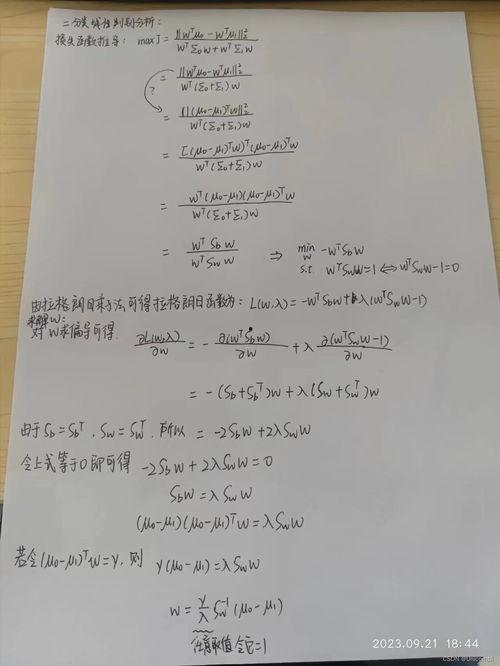 二分类线性判别分析:
损失函数推导: max J = ‖wᵀμ₀ - wᵀμ₁‖₂² / (wᵀΣ₀w + wᵀΣ₁w)
= ‖wᵀμ₀ - wᵀμ₁‖₂² / (wᵀ(Σ₀+Σ₁)w)
?
= ‖(μ₀-μ₁)ᵀw‖₂² / (wᵀ(Σ₀+Σ₁)w)
= [(μ₀-μ₁)ᵀw]ᵀ(μ₀-μ₁)ᵀw / (wᵀ(Σ₀+Σ₁)w)
= wᵀ(μ₀-μ₁)(μ₀-μ₁)ᵀw / (wᵀ(Σ₀+Σ₁)w)
= wᵀS_b w / (wᵀS_w w) ⇒ min_w -wᵀS_b w
s.t. wᵀS_w w=1 ⇔ wᵀS_w w-1=0
由拉格朗日乘子法可得拉格朗日函数为: L(w,λ) = -wᵀS_b w + λ(wᵀS_w w-1)
求解w:
对w求偏导可得 ∂L(w,λ)/∂w = - ∂(wᵀS_b w)/∂w + λ ∂(wᵀS_w w-1)/∂w
= -(S_b+S_bᵀ)w + λ(S_w+S_wᵀ)w
由于S_b=S_bᵀ, S_w=S_wᵀ. 所以 = -2S_b w + 2λS_w w
令上式等于0即可得 -2S_b w + 2λS_w w = 0
S_b w = λS_w w
(μ₀-μ₁)(μ₀-μ₁)ᵀw = λS_w w
若令(μ₀-μ₁)ᵀw=γ, 则 γ(μ₀-μ₁) = λS_w w
w = γ/λ S_w⁻¹(μ₀-μ₁)
任意取值,令它=1
2023.09.21 18:44